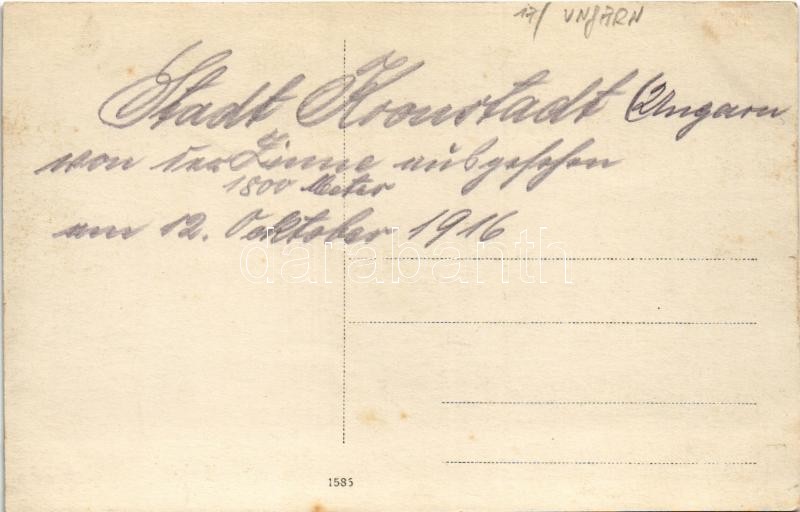 17/ UNGARN
Stadt Kronstadt (Ungarn
von der Zinne ausgesehen
1800 Meter
am 12. Oektober 1916
darabanth
1585